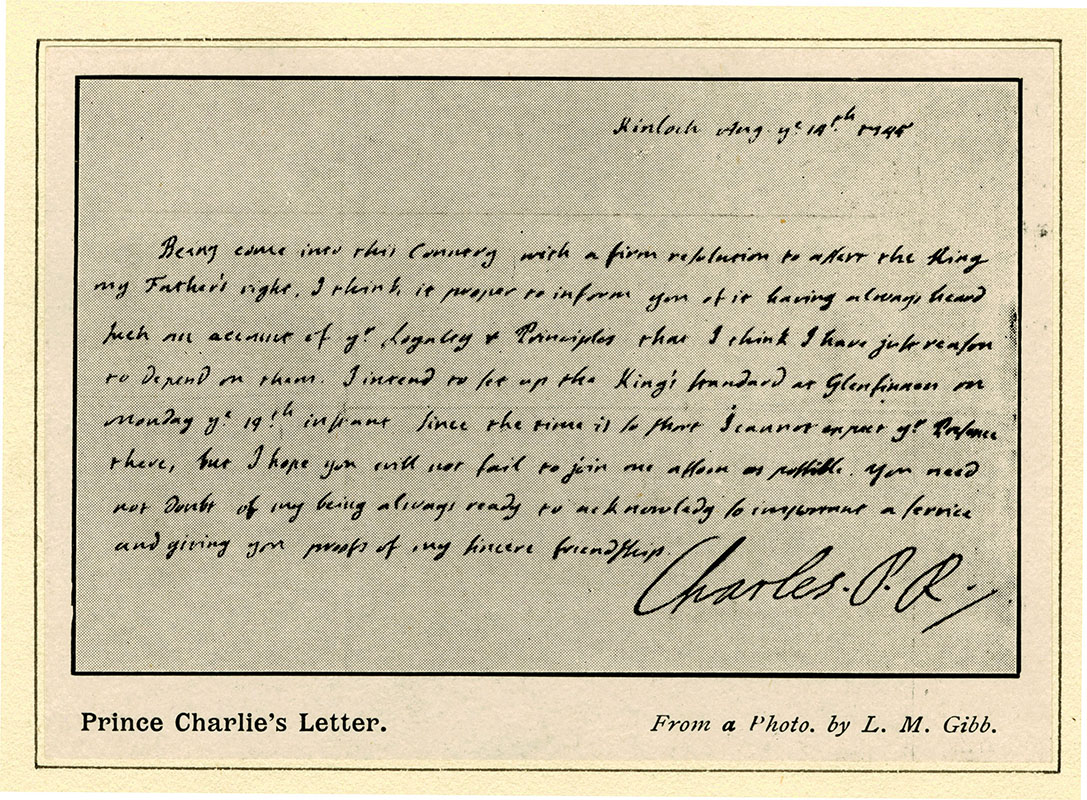 Kinloch Aug. yᵉ 14ᵗʰ 1745
Being come into this Country with a firm resolution to assert the King
my Father's right, I think it proper to inform you of it having always heard
such an account of yʳ Loyalty & Principles that I think I have just reason
to depend on them. I intend to set up the King's standard at Glenfinnan on
Monday yᵉ 19ᵗʰ instant since the time is so short I cannot expect yʳ Presence
there, but I hope you will not fail to join me assoon as possible. you need
not Doubt of my being always ready to acknowledg so important a service
and giving you proofs of my sincere friendship.
Charles. P. R.
Prince Charlie's Letter.
From a Photo. by L. M. Gibb.